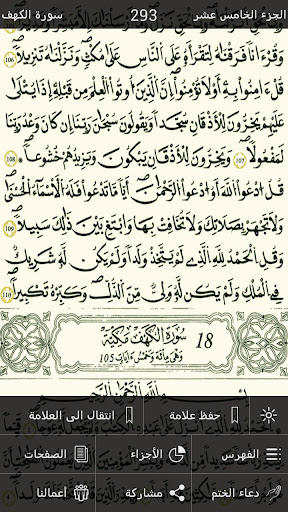 الجزء الخامس عشر 293 سورة الكهف
وَقُرْءَاناً فَرَقْنَٰهُ لِتَقْرَأَهُۥ عَلَى النَّاسِ عَلَىٰ مُكْثٍ وَنَزَّلْنَٰهُ تَنزِيلاً 106
قُلْ ءَامِنُوا بِهِۦٓ أَوْ لَا تُؤْمِنُوٓا إِنَّ الَّذِينَ أُوتُوا الْعِلْمَ مِن قَبْلِهِۦٓ إِذَا يُتْلَىٰ
عَلَيْهِمْ يَخِرُّونَ لِلْأَذْقَانِ سُجَّداً وَيَقُولُونَ سُبْحَٰنَ رَبِّنَآ إِن كَانَ وَعْدُ رَبِّنَا
لَمَفْعُولاً 107 وَيَخِرُّونَ لِلْأَذْقَانِ يَبْكُونَ وَيَزِيدُهُمْ خُشُوعاً 108
قُلُ ادْعُوا اللَّهَ أَوُ ادْعُوا الرَّحْمَٰنَ أَيّاً مَّا تَدْعُوا فَلَهُ الْأَسْمَآءُ الْحُسْنَىٰ
وَلَا تَجْهَرْ بِصَلَاتِكَ وَلَا تُخَافِتْ بِهَا وَابْتَغِ بَيْنَ ذَٰلِكَ سَبِيلاً 109
وَقُلِ الْحَمْدُ لِلَّهِ الَّذِي لَمْ يَتَّخِذْ وَلَداً وَلَمْ يَكُن لَّهُۥ شَرِيكٌ
فِي الْمُلْكِ وَلَمْ يَكُن لَّهُۥ وَلِيٌّ مِّنَ الذُّلِّ وَكَبِّرْهُ تَكْبِيراً 110
18 سُورَةُ الْكَهْفِ مَكِّيَّةٌ
وَهِيَ مِائَةٌ وَخَمْسُ ءَايَاتٍ 105
بِسْمِ اللَّهِ الرَّحْمَٰنِ الرَّحِيمِ
حفظ علامة انتقال الى العلامة
الفهرس الأجزاء الصفحات
دعاء الختم مشاركة اعمالنا